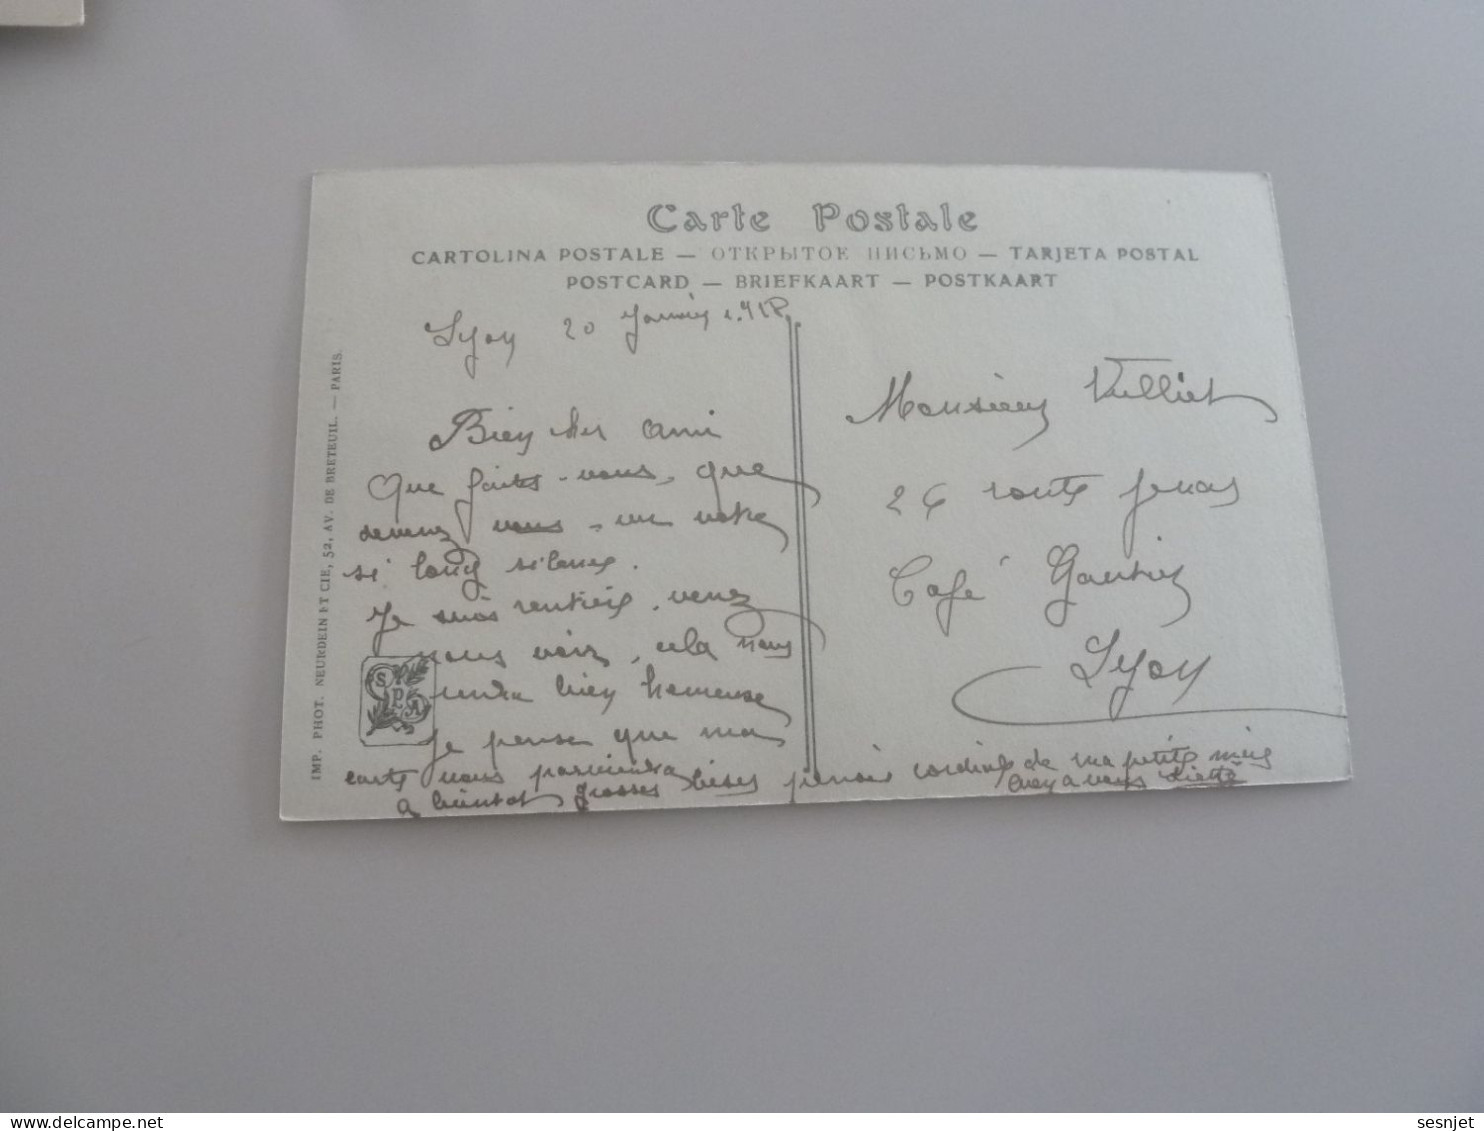 Carte Postale
CARTOLINA POSTALE — ОТКРЫТОЕ ПИСЬМО — TARJETA POSTAL
POSTCARD — BRIEFKAART — POSTKAART
Lyon 20 Janvier 1.918
Bien cher ami
Que faites-vous, que
devenez vous, un votre
si long silence.
Je suis rentière, venez
nous voir, cela nous
rendra bien heureuse
Je pense que ma
carte vous parviendra
a bientot grosses bises pensée cordiale de ma petite
bien a vous
Monsieur Vulliet
26 route genas
Café Gautier
Lyon
SPA
IMP. PHOT. NEURDEIN ET CIE, 52, AV. DE BRETEUIL. — PARIS.
sesnjet